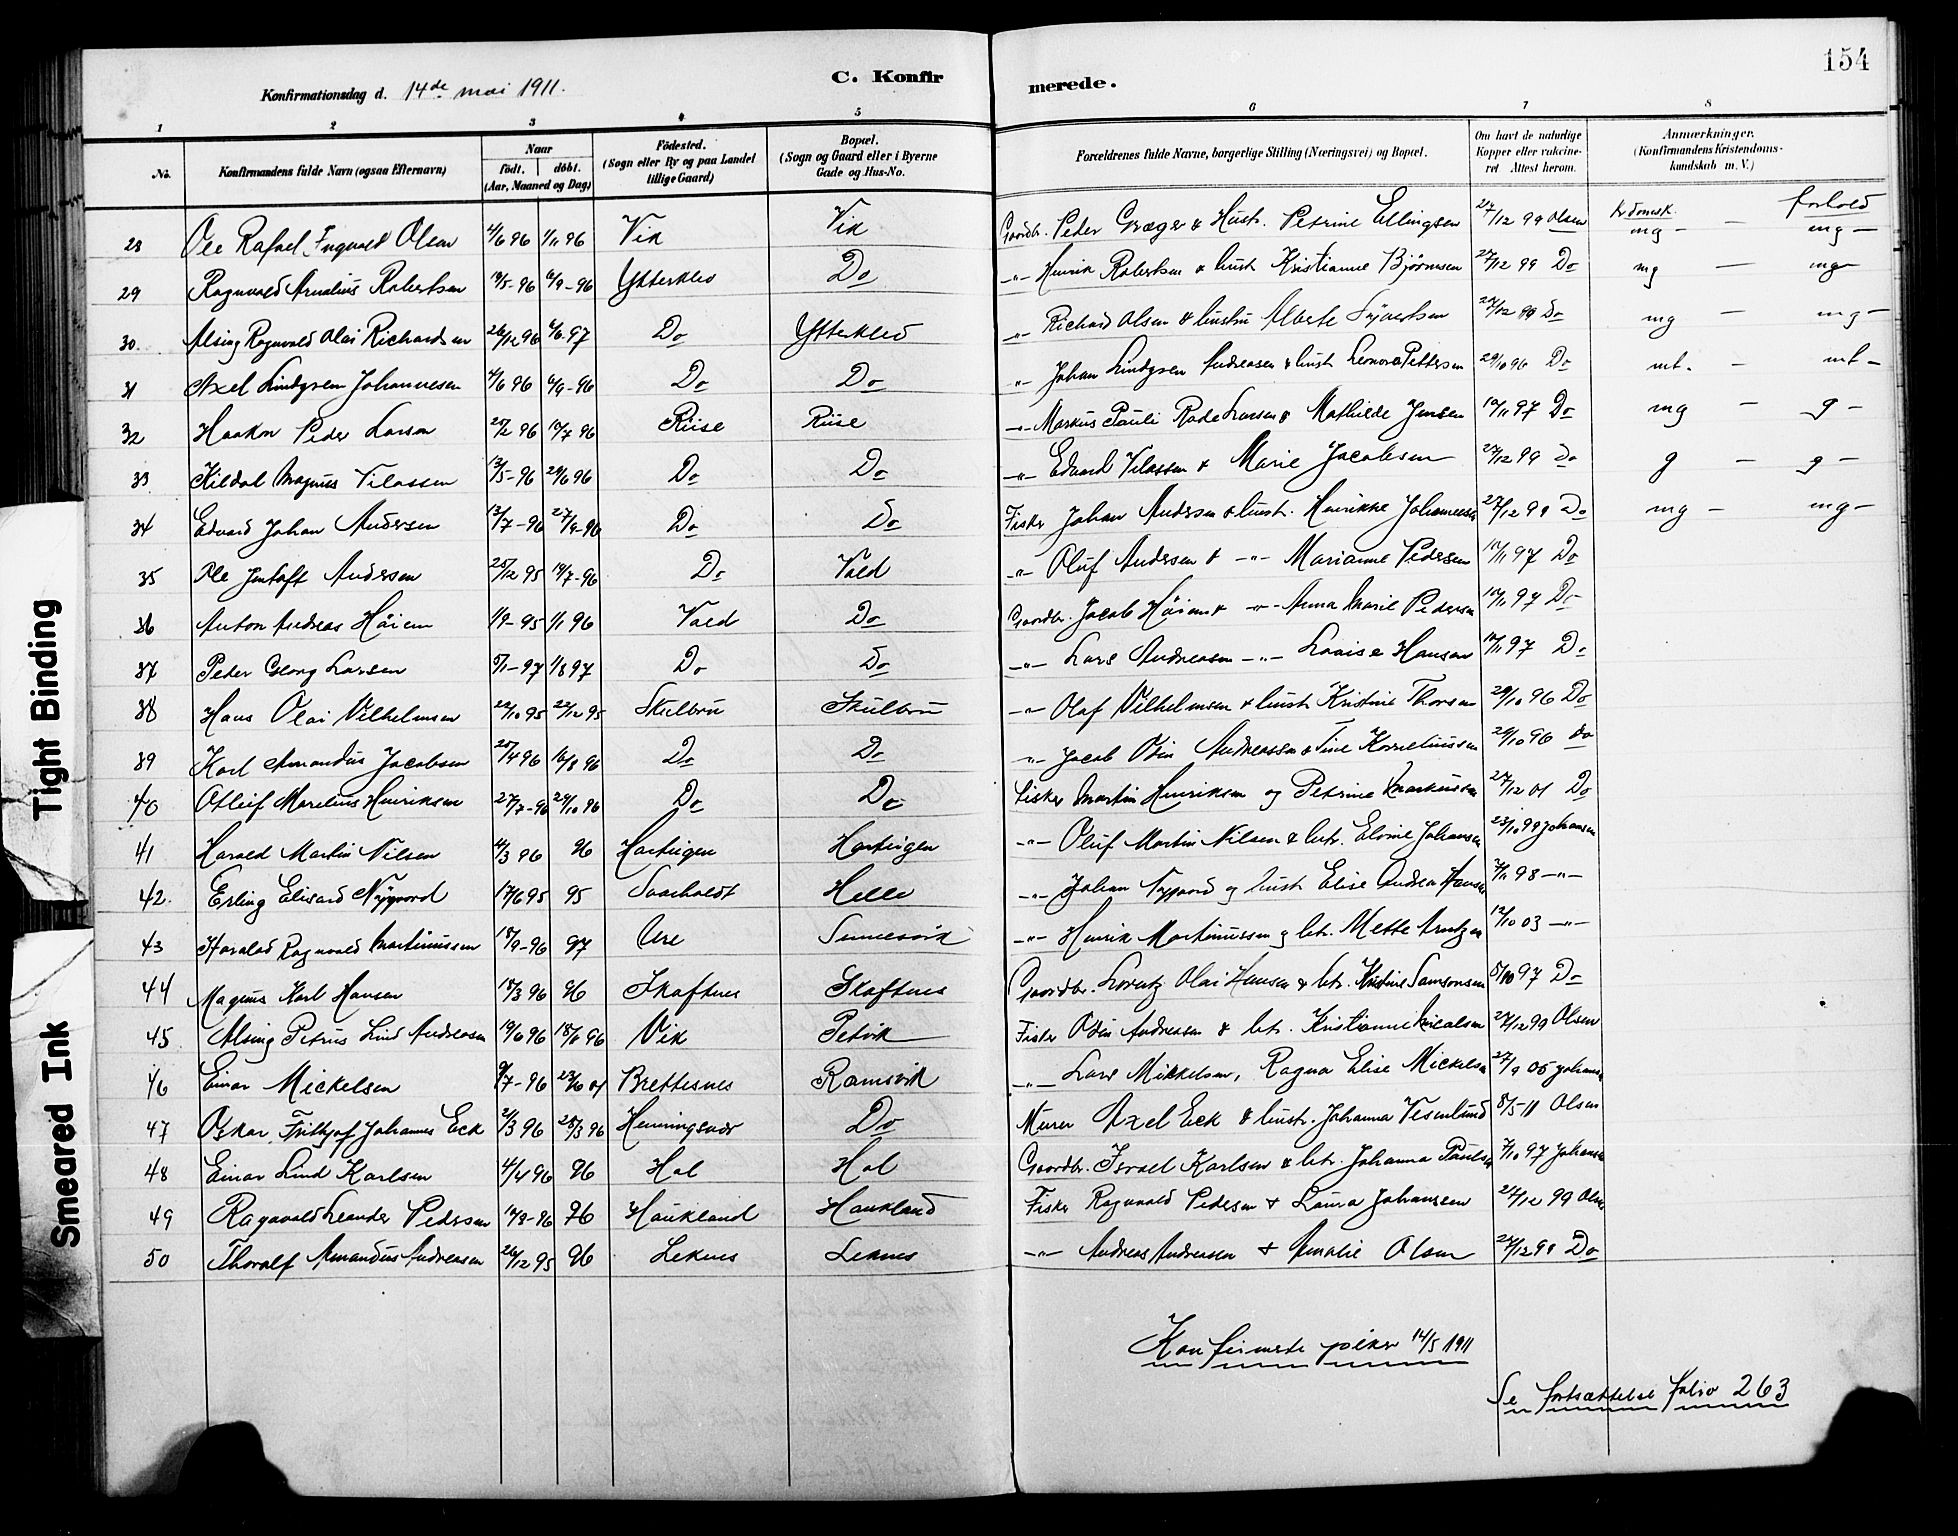 154
C. Konfirmerede.
Konfirmationsdag d. 14de mai 1911.
1 2 3 4 5 6 7 8
No. Konfirmandens fulde Navn (ogsaa Efternavn) Naar födt. döbt. (Aar, Maaned og Dag) Födested. (Sogn eller By og paa Landet tillige Gaard) Bopæl. (Sogn og Gaard eller i Byerne Gade og Hus-No.) Forældrenes fulde Navne, borgerlige Stilling (Næringsvei) og Bopæl. Om havt de naturlige Kopper eller vakcineret Attest herom. Anmærkninger. (Konfirmandens Kristendomskundskab m. V.)
28 Ole Rafael Ingvald Olsen 4/6 96 1/11 96 Vik Vik Gaardbr. Peder Græger & Hustr. Petrine Ellingsen 27/12 99 Olsen kr.domsk. mg — forhold mg —
29 Ragnvald Arnalius Robertsen 19/5-96 6/9-96 Ytterklev Do —"— Henrik Robertsen & hust Kristianne Bjørnsen 27/12 99 Do mg — mg —
30. Alsing Ragnvald Olai Richardsen 26/12 96 6/6 97 Do Ytterklev —"— Richard Olsen & hustru Alberte Syvertsen 27/12 99 Do mg — mg —
31 Axel Lindgren Johannesen 4/6 96 6/9-96 Do Do —"— Johan Lindgren Andreasen & hust Leonora Pettersen 29/10 96 Do mt. — mt —
32 Haakon Peder Larsen 25/2 96 12/7 96 Riise Riise —"— Markus Pauli Rode Larsen & Mathilde Jensen 10/11 97 Do mg — g —
33 Kildal Magnus Tilassen 12/5-96 29/6 96 Do Do —"— Edvard Tilassen & Marie Jacobsen 27/12 99 Do g — g —
34 Edvard Johan Andersen 12/7-96 27/9-96 Do Do Fisker Johan Andersen & hust. Henrikke Johannesen 27/12 99 Do mg — mg —
35 Ole Jentoft Andersen 25/12 95 19/7-96 Do Vold —"— Oluf Andersen & —"— Marianne Pedersen 10/11 97 Do
36 Anton Andreas Höien 1/9-95 1/1 96 Vold Do Gaardbr. Jacob Höien & —"— Anna Marie Pedersen 10/11 97 Do
37 Peder Georg Larsen 5/1-97 1/8 97 Do Do —"— Lars Andreasen —"— Lovise Hansen 10/11 97 Do
38 Hans Olai Vilhelmsen 22/10 95 22/12 95 Skulbru Skulbru —"— Olaf Vilhelmsen & hust Kristine Thorsen 29/10 96 Do
39 Karl Amandus Jacobsen 25/4 96 16/8 96 Do Do —"— Jacob Odin Andreassen & Tine Korneliussen 29/10 96 Do
40 Otleif Marelius Henriksen 27/7-96 29/10 96 Do Do Fisker Martin Henriksen og Petrine Markussen 27/12 01 Do
41 Harald Martin Nilsen 4/3 96 96 Hartvigen Hartvigen —"— Oluf Martin Nilsen & htr. Elvine Johansen 23/10 99 Johansen
42. Erling Elisard Nygaard 17/6 95 95 Saarholdt Helle —"— Johan Nygaard og hust Elise Andrea Hansen 7/11 98 —"—
43 Haralad Ragnvald Martinussen 18/9-96 97 Ure Sennesvik —"— Henrik Martinussen g htr. Mette Arntzen 12/10 03 —"—
44 Magnus Karl Hansen 18/3 96 96 Skaftnes Skaftnes Gaardbr. Lorentz Olai Hansen & htr. Kristine Samsonsen 8/10 97 Do
45 Alsing Petrus Lind Andreasen 19/6 96 18/11 96 Vik Petvik Fisker Odin Andreasen & htr. Kristianne 27/12 99 Olsen
46 Einar Mickelsen 9/7-96 23/6 01 Brettesnes Ramsvik —"— Lars Mikkelsen, Ragna Elise Mickelsen 27/9 05 Johansen
47 Oskar Frithjof Johannes Eck 21/3 96 28/3 96 Henningsvær Do Murer Axel Eck & hustr. Johanna Vesenlund 8/5-11 Olsen
48 Einar Lind Karlsen 4/4 96 96 Hol Hol Gaardbr. Israel Karlsen & htr. Johanna Paulsen 7/10 97 Johansen
49 Ragnvald Leander Pedersen 14/8-96 96 Haukland Haukland Fisker Ragnvald Pedersen & Laura Johansen 27/12 99 Olsen
50 Thoralf Amandus Andreasen 26/12 95 96 Leknes Leknes —"— Andreas Andreasen & Amalie Olsen 27/12 99 Do
Konfirmerte piker 14/5 1911
Se fortsættelse folio 263
Tight Binding
Smeared Ink